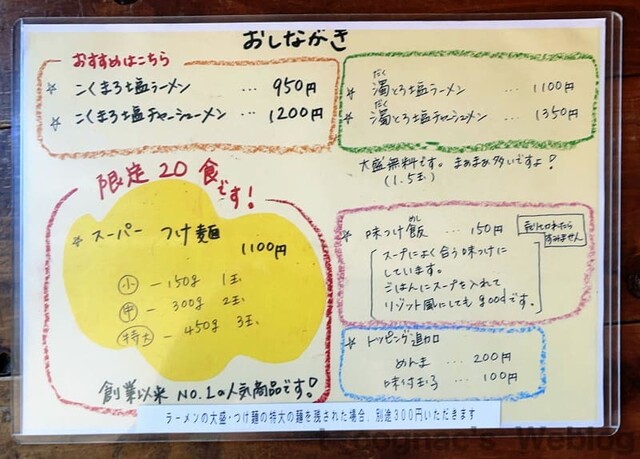 おしながき
おすすめはこちら
☆ こくまろ塩ラーメン … 950円
☆ こくまろ塩チャーシューメン … 1200円
だく
☆ 濁とろ塩ラーメン … 1100円
だく
☆ 濁とろ塩チャーシュメン … 1350円
大盛無料です。まあまあ多いですよ!
(1.5玉)
限定20食です!
☆ スーパー つけ麺
1100円
小 — 150g 1玉
中 — 300g 2玉
特大 — 450g 3玉
創業以来 NO.1の人気商品です!
めし
☆ 味つけ飯 … 150円
売り切れたら
すみません
スープによく合う味つけに
しています。
ごはんにスープを入れて
リゾット風にしてもgoodです。
☆ トッピング追加
めんま … 200円
味付玉子 … 100円
ラーメンの大盛・つけ麺の特大の麺を残された場合、別途300円いただきます
's Weblog